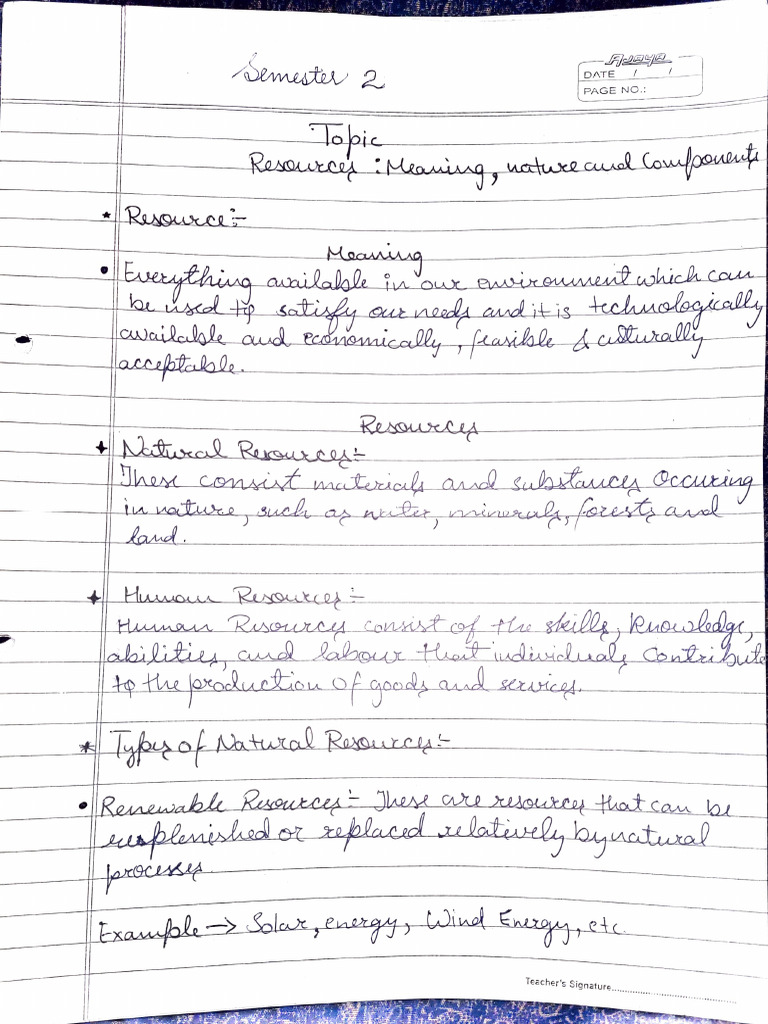 Semester 2
Ajaya
DATE / /
PAGE NO.:
Topic
Resources : Meaning, nature and Components
* Resource:-
Meaning
• Everything available in our environment which can
be used to satisfy our needs and it is technologically
available and economically, feasible & culturally
acceptable.
Resources
Natural Resources:-
These consist materials and substances Occuring
in nature, such as water, minerals, forests and
land.
Human Resources:-
Human Resources consist of the skills, knowledge,
abilities, and labour that individuals Contribute
to the production of goods and services.
* Types of Natural Resources:-
• Renewable Resources:- These are resources that can be
replaced relatively by natural
processes.
Example → Solar, energy, Wind Energy, etc.
Teacher's Signature